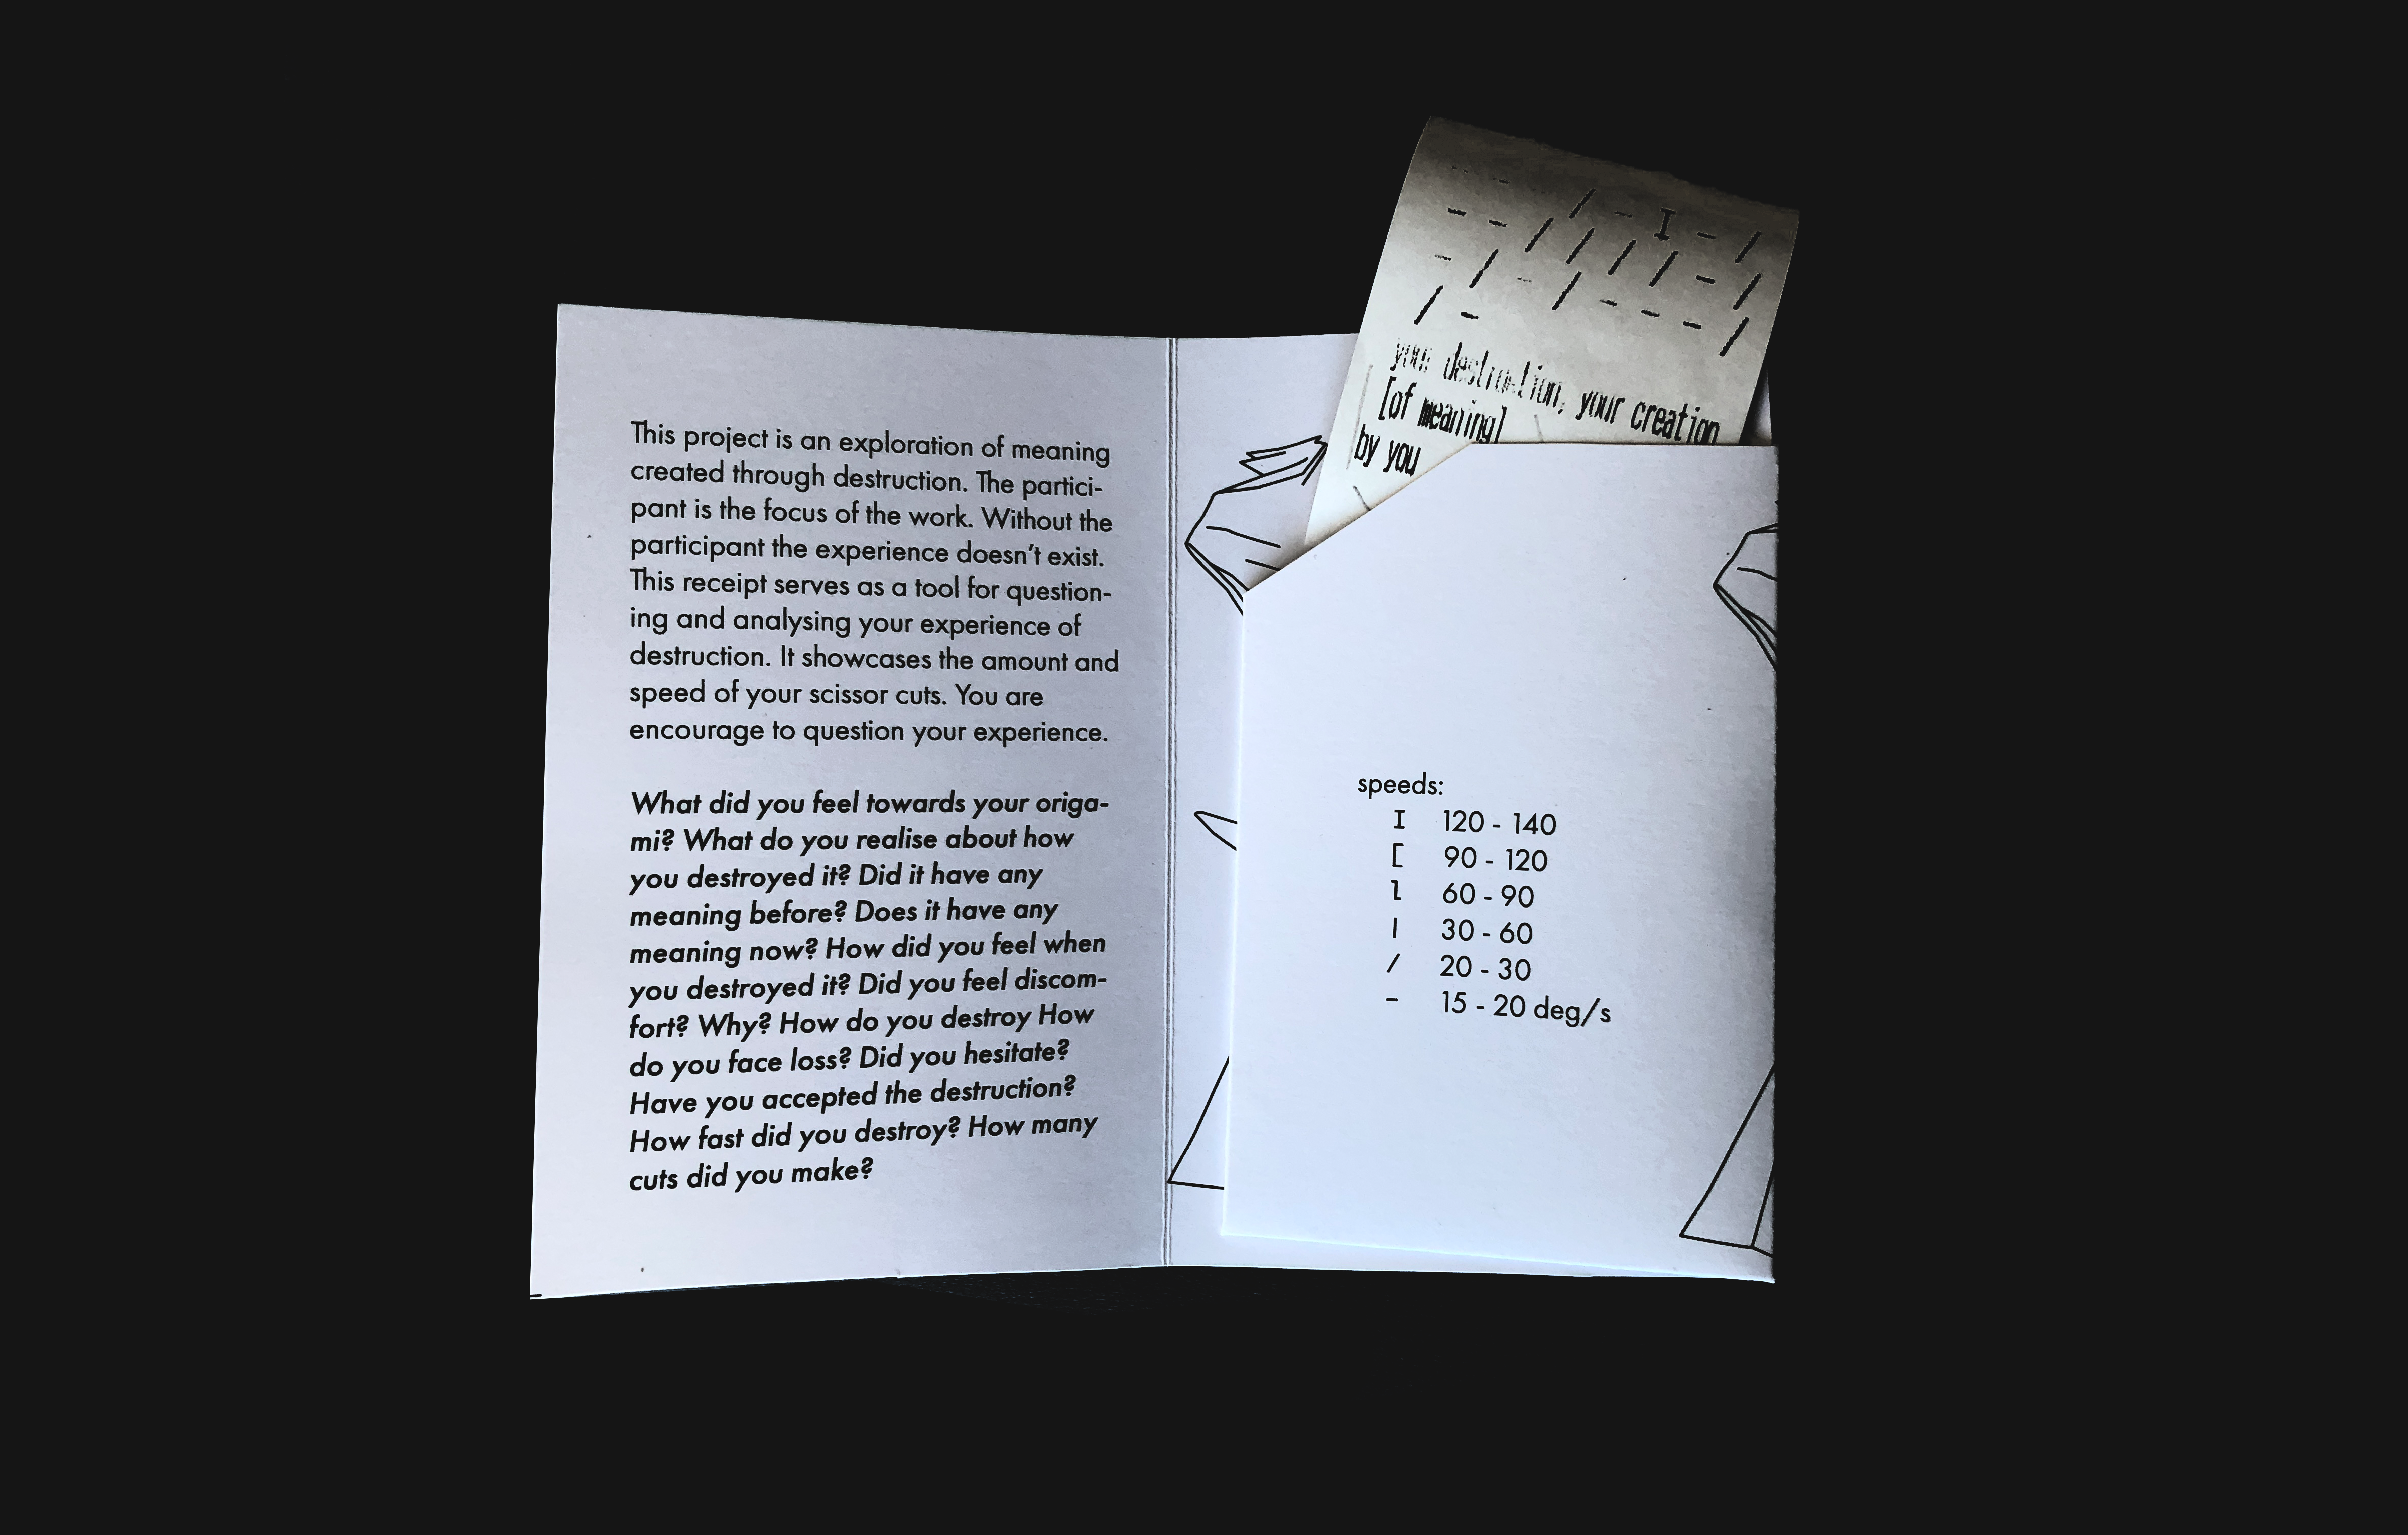 This project is an exploration of meaning
created through destruction. The partici-
pant is the focus of the work. Without the
participant the experience doesn't exist.
This receipt serves as a tool for question-
ing and analysing your experience of
destruction. It showcases the amount and
speed of your scissor cuts. You are
encourage to question your experience.
What did you feel towards your origa-
mi? What do you realise about how
you destroyed it? Did it have any
meaning before? Does it have any
meaning now? How did you feel when
you destroyed it? Did you feel discom-
fort? Why? How do you destroy How
do you face loss? Did you hesitate?
Have you accepted the destruction?
How fast did you destroy? How many
cuts did you make?
/ - I - /
- - / / / / - /
- / - / - - - /
/ -
your destruction, your creation
[of meaning]
by you
speeds:
I 120 - 140
[ 90 - 120
l 60 - 90
| 30 - 60
/ 20 - 30
- 15 - 20 deg/s